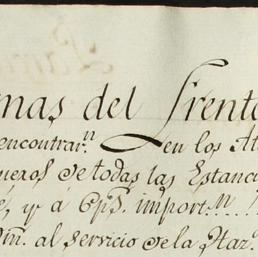 mas del frente
encontrar.n en los
neros de todas las Estanc
y á Cps. import.n
al servicio dela Haz.